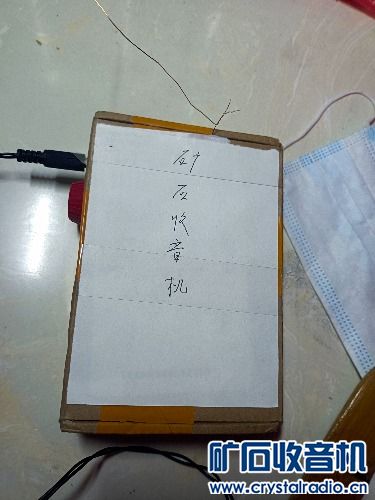 矿
石
收
音
机
矿石收音机
www.crystalradio.cn